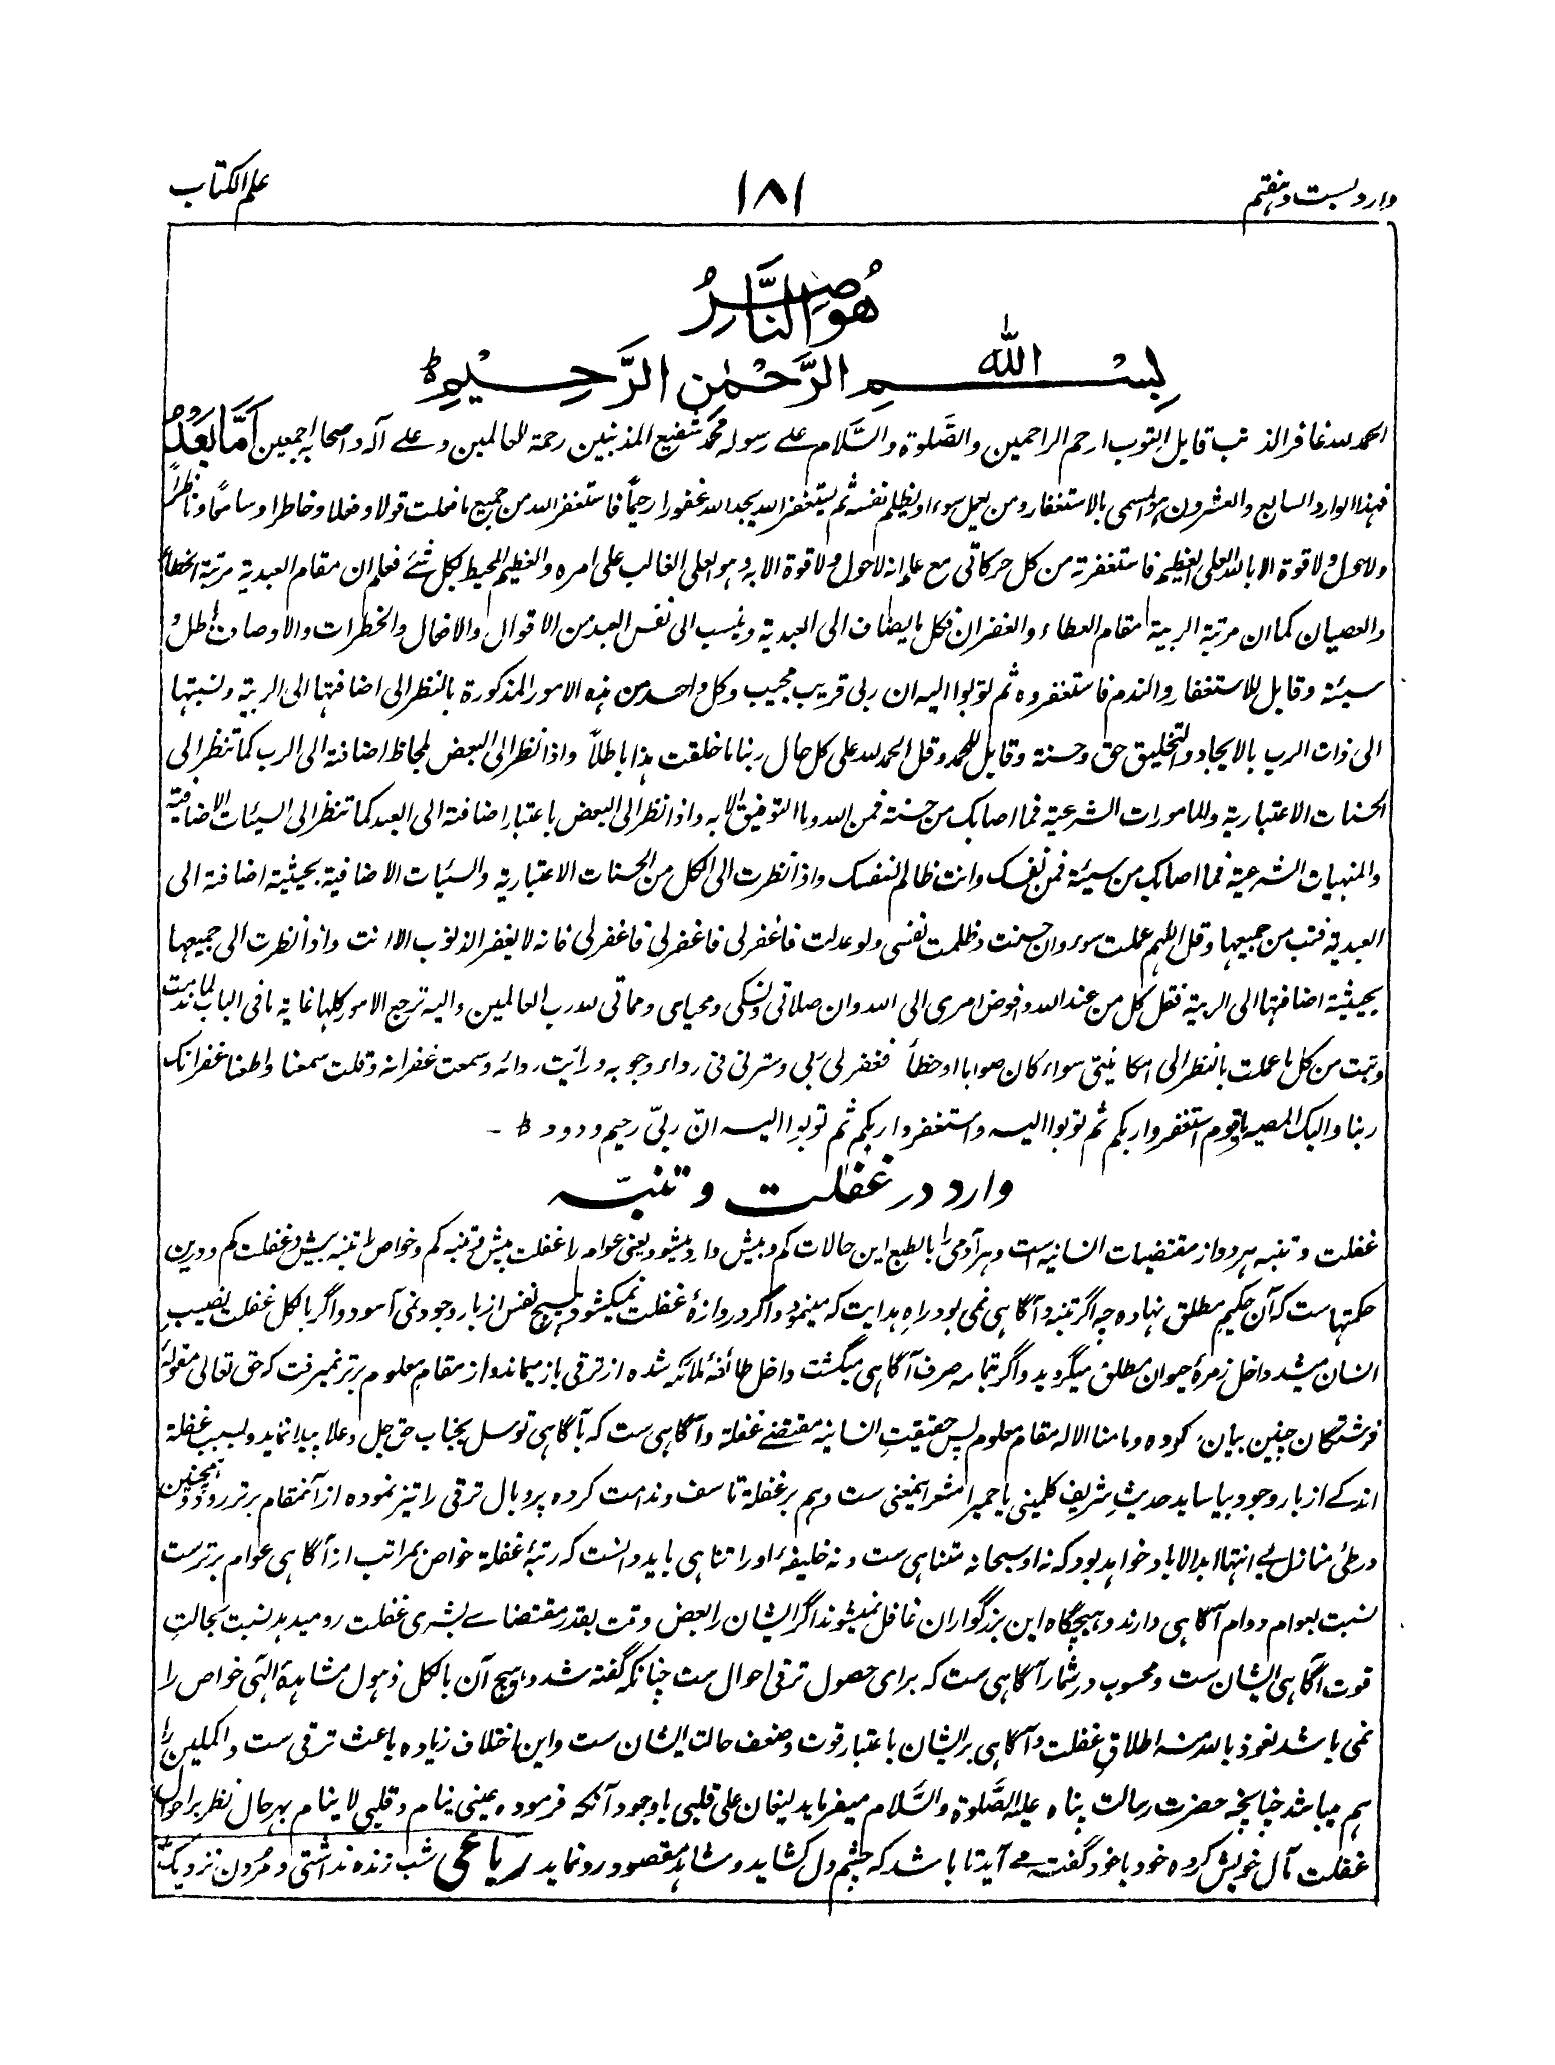 وارد بست و هفتم
١٨١
علم الکتاب
هُوَ النَّاصِرُ
بِسْمِ اللہ الرَّحْمٰنِ الرَّحِیْمِ ط
الحمد للہ غافر الذنب قابل التوب ارحم الراحمین والصَّلوة والسَّلام علے رسولہ محمد شفیع المذنبین رحمة للعالمین وعلے آلہ واصحابہ اجمعین اَمَّا بَعْدُ
فہذا الوارد السابع والعشرون ہو المسمی بالاستغفار ومن یعمل سوءا او یظلم نفسہ ثم یستغفر اللہ یجد اللہ غفورا رحیماً فاستغفر اللہ من جمیع ما فعلت قولا وفعلا وخاطرا وسامعًا وناظراً
ولا حول ولا قوة الا باللہ العلی العظیم فاستغفرتہ من کل حرکاتی مع علم انہ لا حول ولا قوة الا بہ وہو العلی الغالب علی امرہ والعظیم المحیط بکل شئے فعلم ان مقام العبدیة مرتبة الخطاء
والعصیان کما ان مرتبة الربیة مقام العطاء والغفران فکل ما یضاف الی العبدیة وینسب الی نفس العبد من الاقوال والافعال والخطرات والاوصاف باطل و
سیئة وقابل للاستغفار والندم فاستغفروہ ثم توبوا الیہ ان ربی قریب مجیب وکل واحد من ہذہ الامور المذکورة بالنظر الی اضافتہا الی الربیة ونسبتہا
الی ذات الرب بالایجاد والتخلیق حق وحسنة وقابل للحمد وقل الحمد للہ علی کل حال ربنا ما خلقت ہذا باطلاً واذا تنظر الی البعض لحاظ اضافتہ الی الرب کما تنظر الی
الحسنات الاعتباریة والمامورات الشرعیة فما اصابک من حسنة فمن اللہ وما التوفیق الا بہ واذا تنظر الی البعض باعتبار اضافتہ الی العبد کما تنظر الی السیئات الاضافیة
والمنہیات الشرعیة فما اصابک من سیئة فمن نفسک وانت ظالم لنفسک واذا نظرت الی الکل من الحسنات الاعتباریة والسیئات الاضافیة بحیثیة اضافتہ الی
العبدیة فتب من جمیعہا وقل اللہم عملت سوء وان حسنت وظلمت نفسی ولو عدلت فاغفر لی فاغفر لی فاغفر لی فانہ لا یغفر الذنوب الا انت واذا نظرت الی جمیعہا
بحیثیة اضافتہا الی الربیة فقل کل من عند اللہ وافوض امری الی اللہ وان صلاتی ونسکی ومحیای ومماتی للہ رب العالمین والیہ ترجع الامور کلہا غایة ما فی الباب لما ندمت
وتبت من کل ما عملت بالنظر الی امکانیتی سواء کان صوابا او خطأ فغفر لی ربی وسترنی فی رداء وجوبہ ورایت ردائہ وسمعت غفرانہ وقلت سمعنا واطعنا غفرانک
ربنا والیک المصیر یاقوم استغفروا ربکم ثم توبوا الیہ واستغفروا ربکم ثم توبوا الیہ انّ ربیّ رحیم ودود ط ۔
وارد در غفلت و تنبّہ
غفلت و تنبہ ہر دو از مقتضیات انسانیہ است و ہر آدمی را بالطبع این حالات کم و بیش وارد میشود یعنی عوام را غفلت بیش و تنبہ کم و خواص را تنبہ بیش و غفلت کم و درین
حکمتہاست کہ آن حکیم مطلق نہادہ چہ اگر تنبہ و آگاہی نمی بود راہِ ہدایت کہ مینمود و اگر دروازۂ غفلت نمیکشود ہیچ نفس از بار وجود نمی آسود و اگر بالکل غفلت نصیبِ
انسان میشد داخل زمرۂ حیوان مطلق میگردید و اگر بتمامہ صرف آگاہی میگشت داخل طائفۂ ملائکہ شدہ از ترقی باز میماند و از مقامِ معلوم برتر نمیرفت کہ حق تعالی مقولۂ
فرشتگان چنین بیان کردہ وما منا الا لہ مقام معلوم پس حقیقتِ انسانیہ مقتضے غفلة و آگاہی ست کہ بآگاہی توسل بجناب حق جل و علا پیدا نماید و بسبب غفلة
اندکے از بار وجود بیاساید حدیثِ شریف کلمینی یا حمیرا مشعر ایمعنی ست و ہم بر غفلة تاسف و ندامت کردہ پر و بال ترقی را تیز نمودہ از آنمقام برتر رود و ہمچنین
در طی منازل بے انتہا ابدالاباد خواہد بود کہ نہ او سبحانہ متناہی ست و نہ خلیفۂ او را تناہی باید دانست کہ رتبۂ غفلة خواص بمراتب از آگاہی عوام برترست
نسبت بعوام دوام آگاہی دارند و ہیچگاہ این بزرگواران غافل نمیشوند اگر ایشان را بعض وقت بقدر مقتضاے بشری غفلت رو میدہد نسبت بحالتِ
قوت آگاہی ایشان ست و محسوب در شمار آگاہی ست کہ برای حصول ترقی احوال ست چنانکہ گفتہ شد و ہیچ آن بالکل ذہول مشاہدۂ الٓہی خواص را
نمی باشد نعوذ باللہ منہ اطلاقِ غفلت و آگاہی بر ایشان باعتبار قوت و ضعف حالت ایشان ست و این اختلاف زیادہ باعث ترقی ست و اکملین را
ہم میباشد چنانچہ حضرت رسالت پناہ علیہ الصَّلوة والسَّلام میفرماید لیغان علی قلبی باوجود آنکہ فرمودہ عینی ینام وقلبی لا ینام بہرحال نظر بر احوال
غفلت مآل خویش کردہ خود با خود گفتہ مے آید تا باشد کہ چشم دل کشاید و شاہد مقصود رو نماید رباعی شب زندہ نداشتی و مردن نزدیک